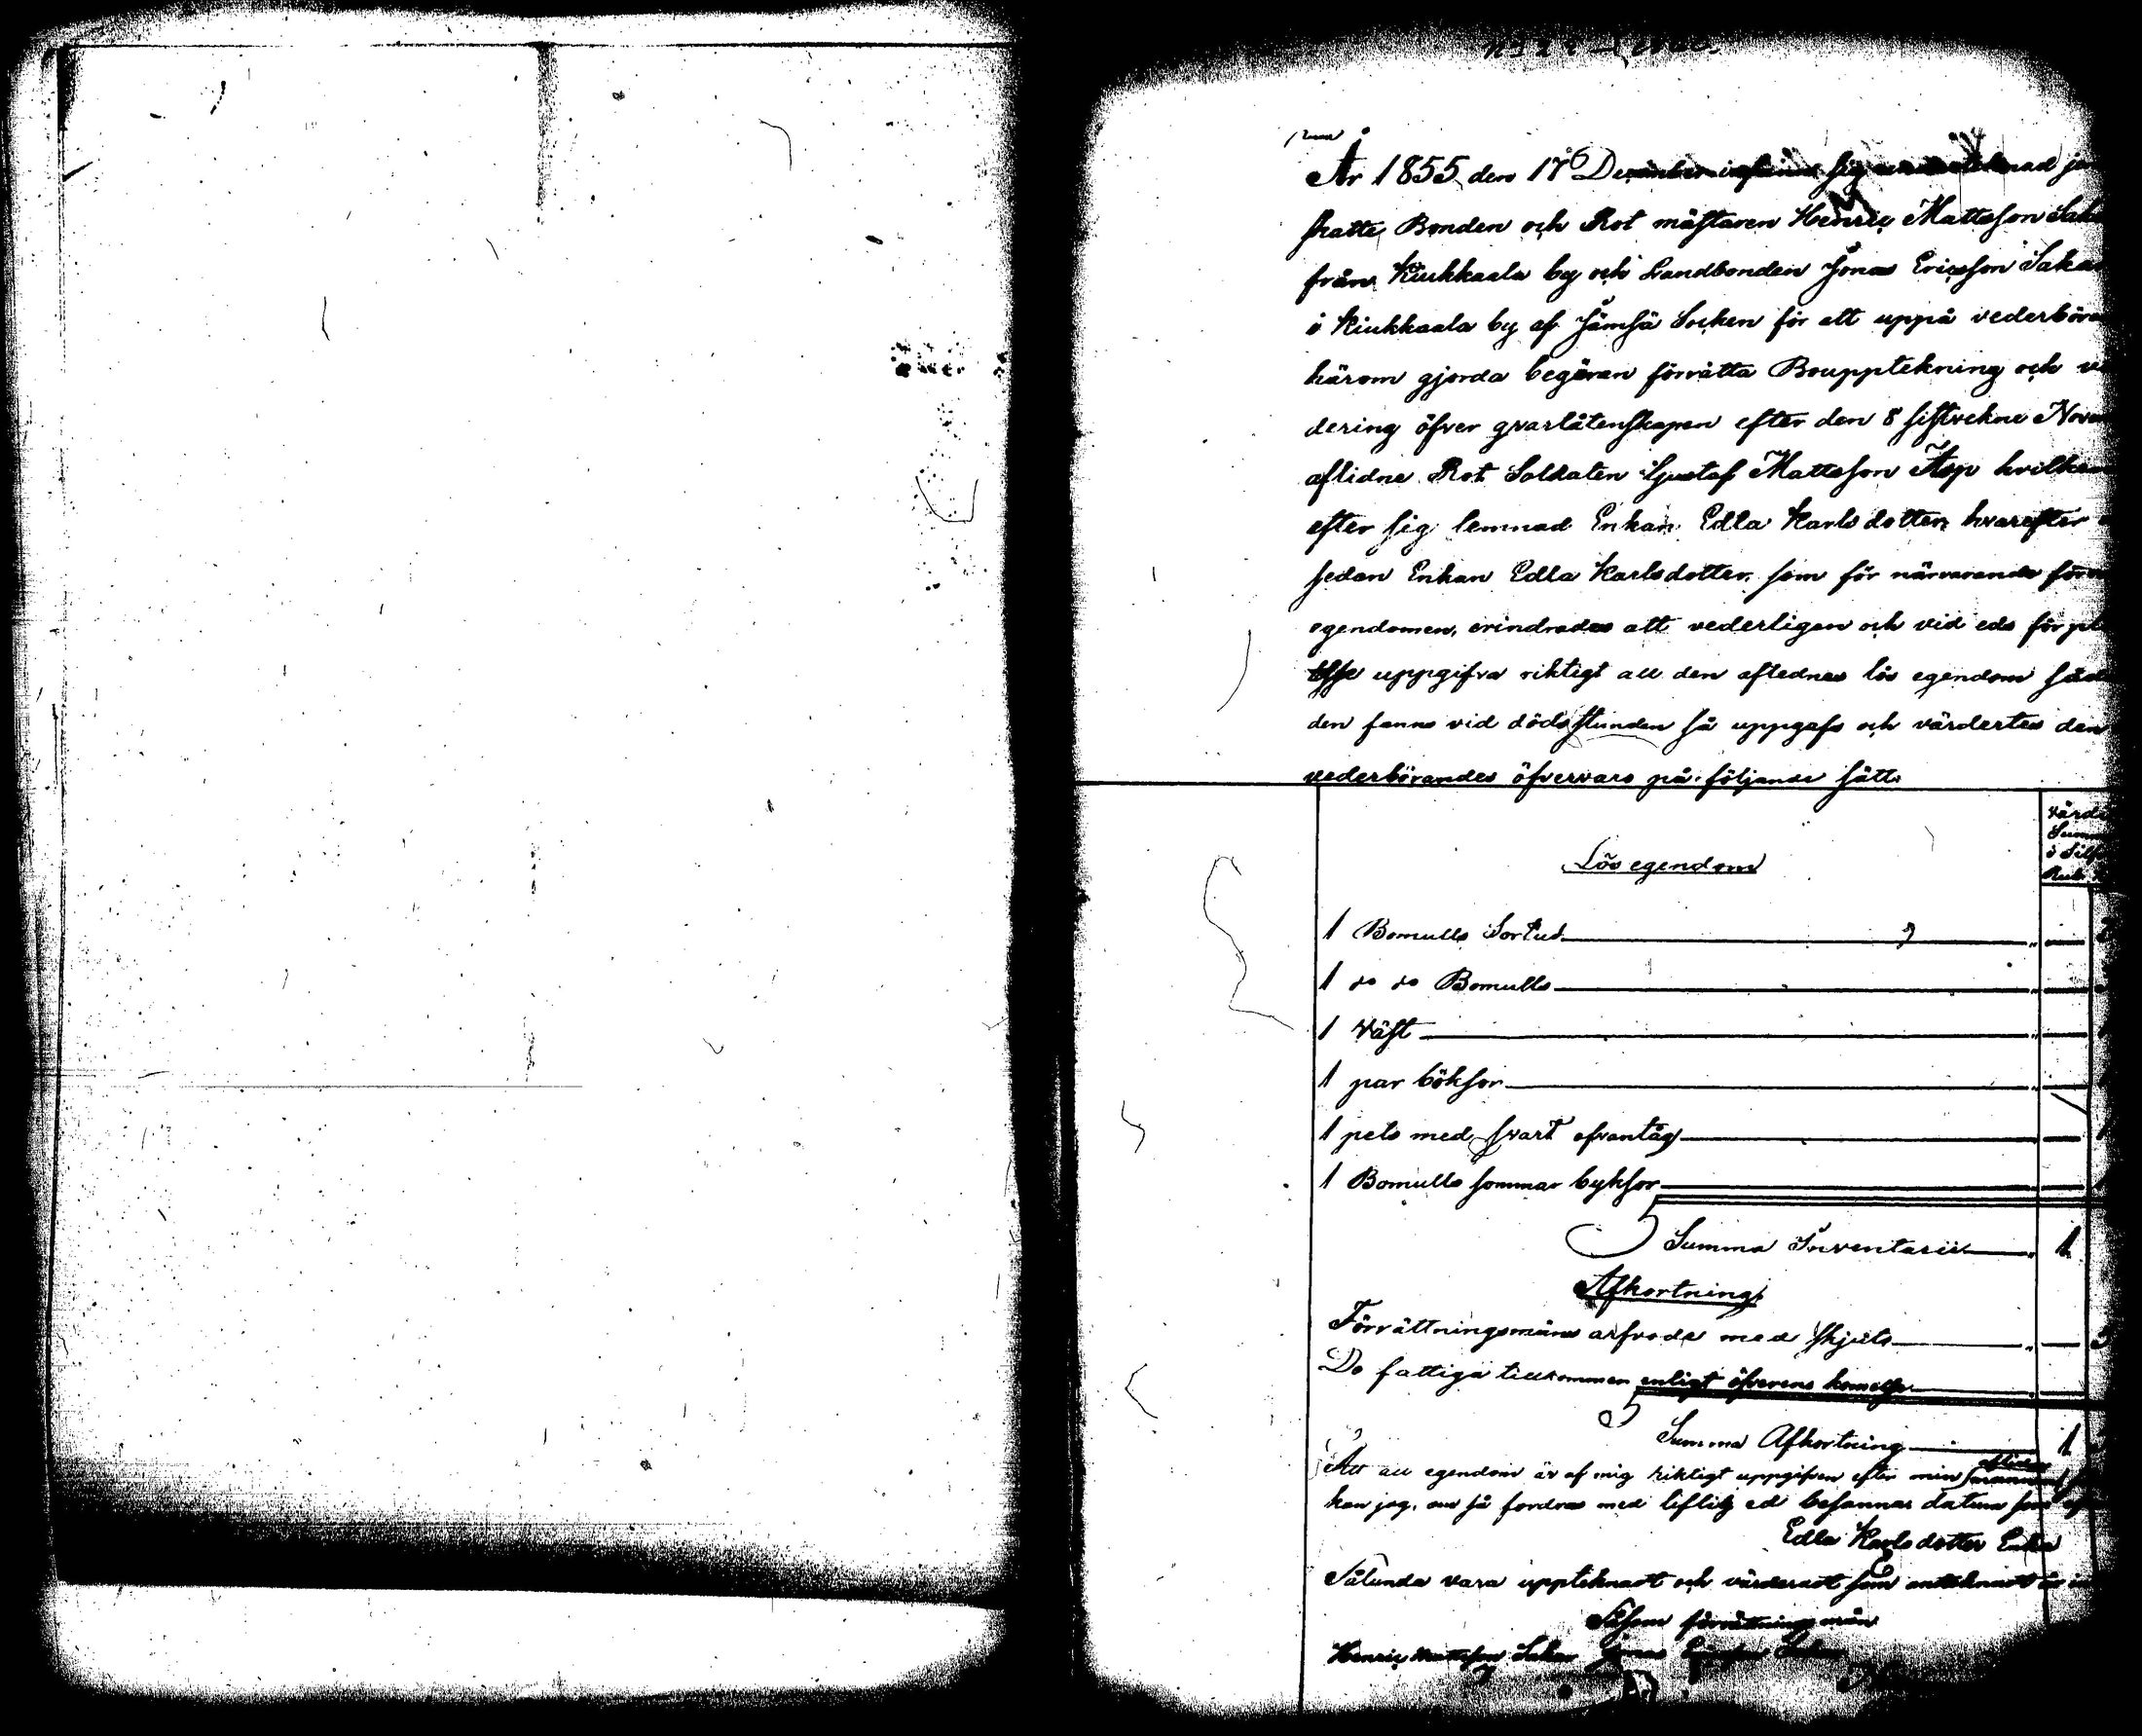 År 1855 den 17 December infann sig undertecknad
skatte Bonden och Rot mästaren Henric Mattsson
från Kiukkaala by och Landbonden Jonas Ericsson
i Kiukkaala by af Jämsä Socken för att uppå
härom gjorda begäran förrätta Bouppteknning och
dering öfver qvarlåtenskapen efter den 8 sistvekne
aflidne Rot Soldaten Gustaf Mattsson Asp
efter sig lemnad Enkan Edla Karlsdotter, hvarefter
sedan Enkan Edla Karlsdotter som för närvarande
egendomen, erindrades att vederligen och vid eds
uppgifva riktigt all den aflednes lös egendom
den fanns vid dödsstunden så uppgafs och värdertes den
vederbörandes öfvervaro på följande sätt.
Lös egendom
1 Bomulls Sortud
1 do do Bomulls
1 Väst
1 par böksor
1 pels med svart ofvantåg
1 Bomulls sommar byksor
Summa Inventarii 1
Afkortning
Förrättningsmäns arfvode med skjuts
De fattiga tillkommen enligt öfverens komelse
Summa Afkortning 1
Att all egendom är af mig riktigt uppgifven efter min
kan jag, om så fordras med liflig ed besannas datum som
Edla Karlsdotter Enka
Sålunda vara uppteknadt och värderadt som anteknadt är
förrättnings män
Henric Mattsson Jonas Ericsson